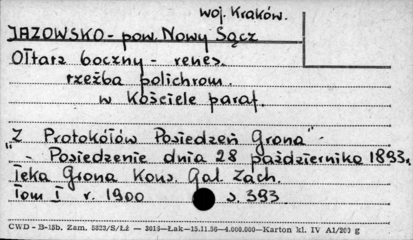 woj. Kraków.
JAZOWSKO - pow. Nowy Sącz
Ołtarz boczny - renes.
rzeźba polichrom.
w Kościele paraf.
„Z Protokółów Posiedzeń Grona" -
- Posiedzenie dnia 28 października 1893.
Teka Grona Kons. Gal. Zach.
Tom I r. 1900 s. 393
CWD - B-15b. Zam. 5823/S/Łż — 3016—Łak—15.11.56—4.000.000—Karton kl. IV A1/200 g